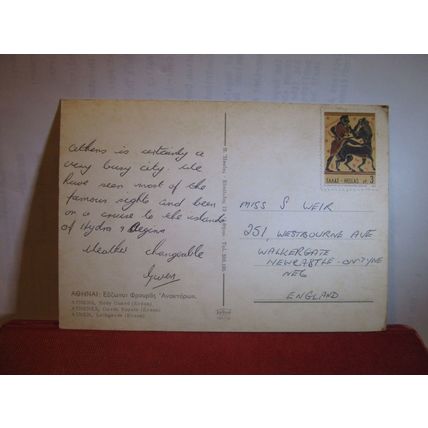 Athens is certainly a
very busy city. We
have seen most of the
famous sights and been
on a cruise to the islands
of Hydra & Aegina
Weather changeable
Gwen
ΑΘΗΝΑΙ: Εὔζωνοι Φρουρᾶς Ἀνακτόρων.
ATHENS, Body Guard (Evzon)
ATHENES, Garde Royale (Evzon)
ATHEN, Leibgarde (Evzon)
ΕΛΛΑΣ-HELLAS
3
MISS S WEIR
251, WESTBOURNE AVE
WALKERGATE
NEWCASTLE-ON-TYNE
NE6
ENGLAND